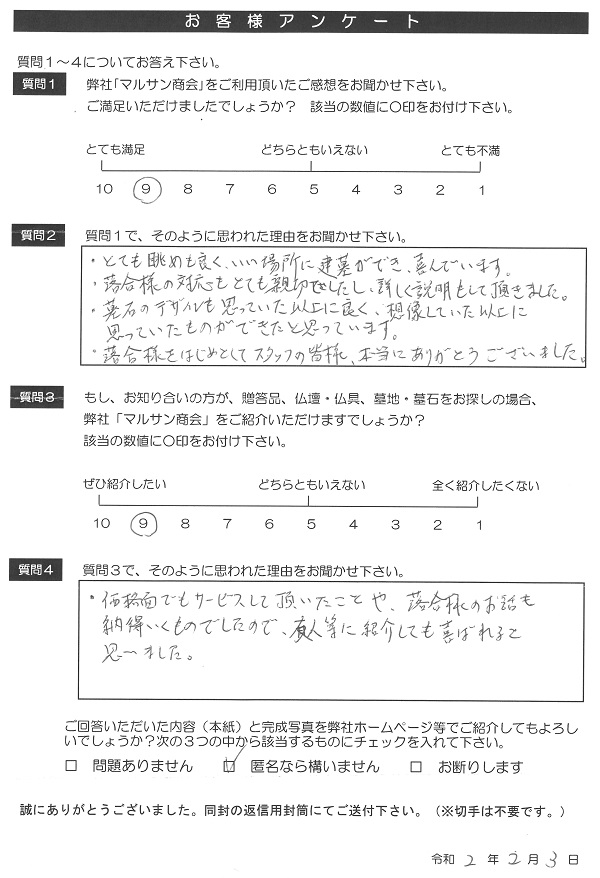 お客様アンケート
質問1~4についてお答え下さい。
質問1 弊社「マルサン商会」をご利用頂いたご感想をお聞かせ下さい。
ご満足いただけましたでしょうか? 該当の数値に○印をお付け下さい。
とても満足 どちらともいえない とても不満
10 9 8 7 6 5 4 3 2 1
質問2 質問1で、そのように思われた理由をお聞かせ下さい。
・とても眺めも良く、いい場所に建墓ができ、喜んでいます。
・落合様の対応もとても親切でしたし、詳しく説明もして頂きました。
・墓石のデザインも思っていた以上に良く、想像していた以上に
思っていたものができたと思っています。
・落合様をはじめとしてスタッフの皆様、本当にありがとうございました。
質問3 もし、お知り合いの方が、贈答品、仏壇・仏具、墓地・墓石をお探しの場合、
弊社「マルサン商会」をご紹介いただけますでしょうか?
該当の数値に○印をお付け下さい。
ぜひ紹介したい どちらともいえない 全く紹介したくない
10 9 8 7 6 5 4 3 2 1
質問4 質問3で、そのように思われた理由をお聞かせ下さい。
・価格面でもサービスして頂いたことや、落合様のお話も
納得いくものでしたので、友人等に紹介しても喜ばれると
思いました。
ご回答いただいた内容(本紙)と完成写真を弊社ホームページ等でご紹介してもよろし
いでしょうか?次の3つの中から該当するものにチェックを入れて下さい。
□ 問題ありません ☑ 匿名なら構いません □ お断りします
誠にありがとうございました。同封の返信用封筒にてご送付下さい。(※切手は不要です。)
令和 2 年 2 月 3 日